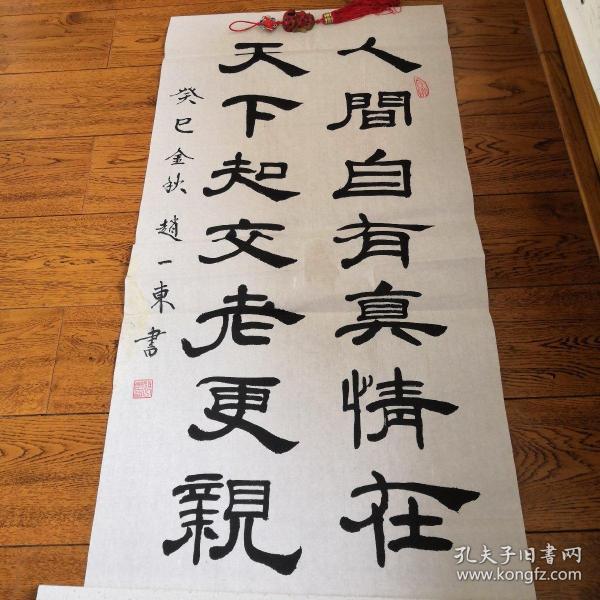 人間自有真情在
天下知交老更親
癸巳金秋 趙一東書
孔夫子旧书网
www.kongfz.com